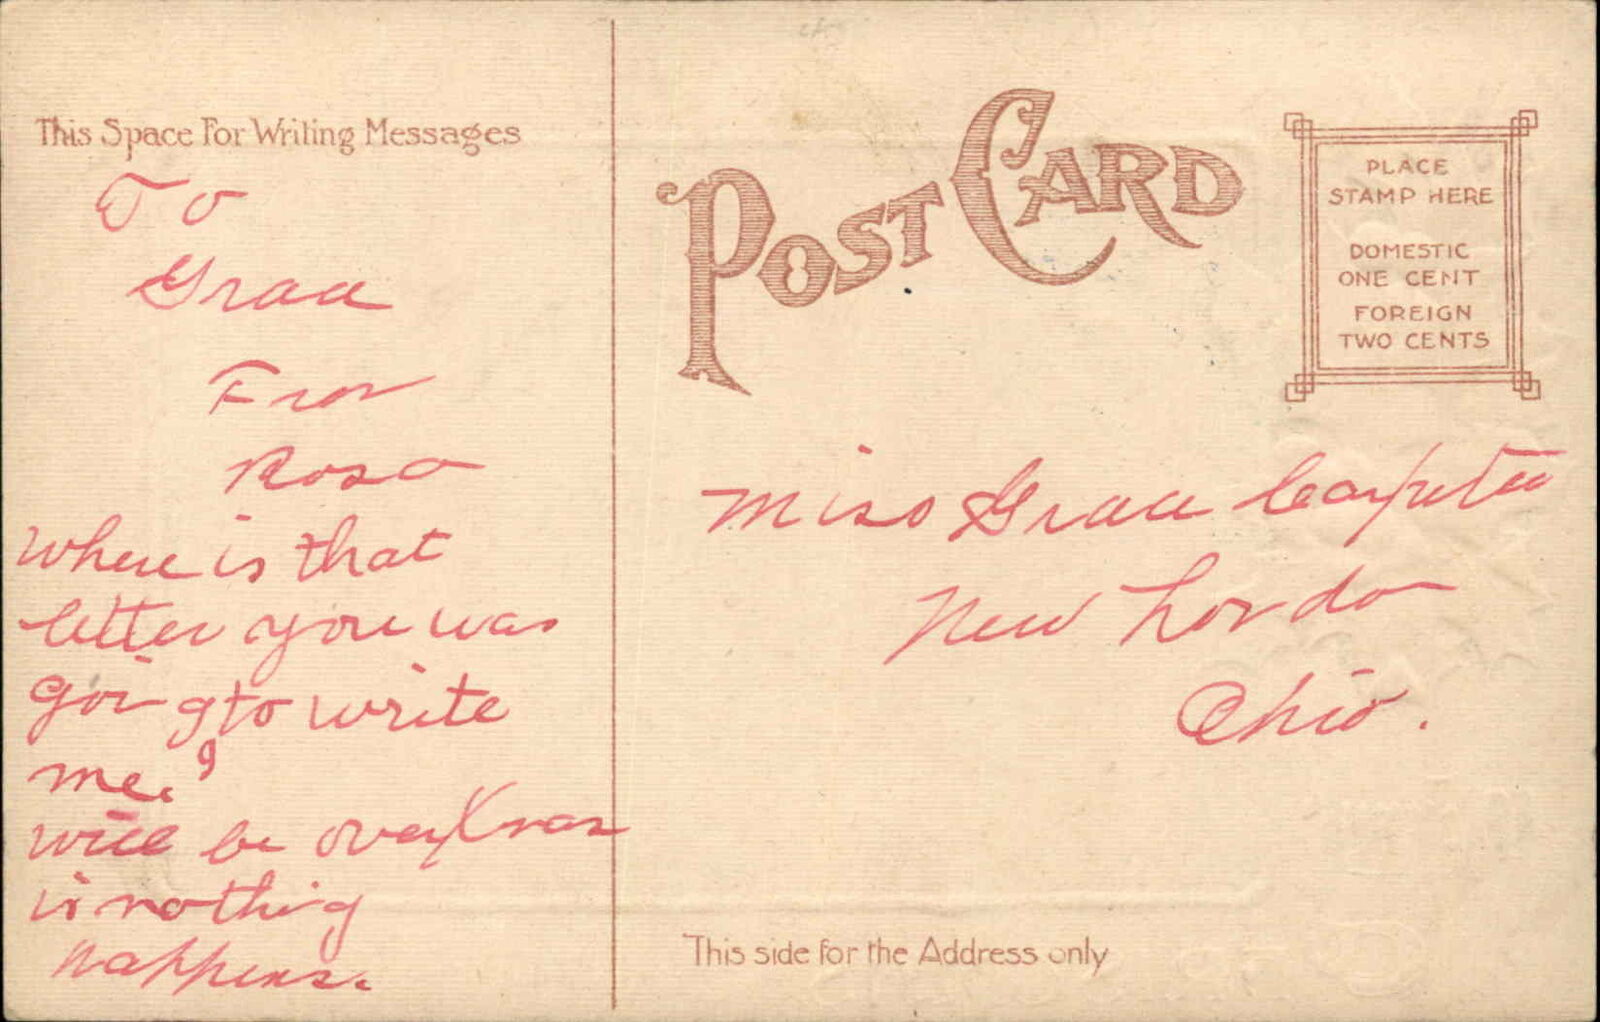 This Space For Writing Messages
To
Grace
From
Rosa
Where is that
letter you was
going to write
me.?
will be over Xmas
is nothing
happens.
POST CARD
PLACE
STAMP HERE
DOMESTIC
ONE CENT
FOREIGN
TWO CENTS
Miss Grace Carpenter
New London
Ohio.
This side for the Address only